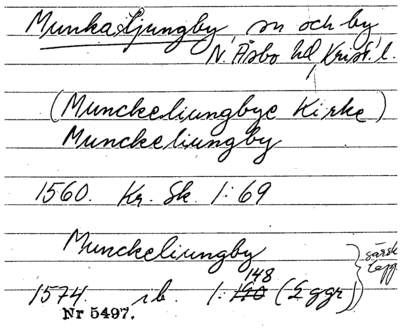 Munka Ljungby, sn och by
N. Åsbo hd, Krist. l.
(Munckeliungbye Kirke)
Munckeliungby
1560. Kr. Sk. 1:69
Munckeliungby
148
1574. ib. 1: 190 (2 ggr)
särsk.
Nr 5497.